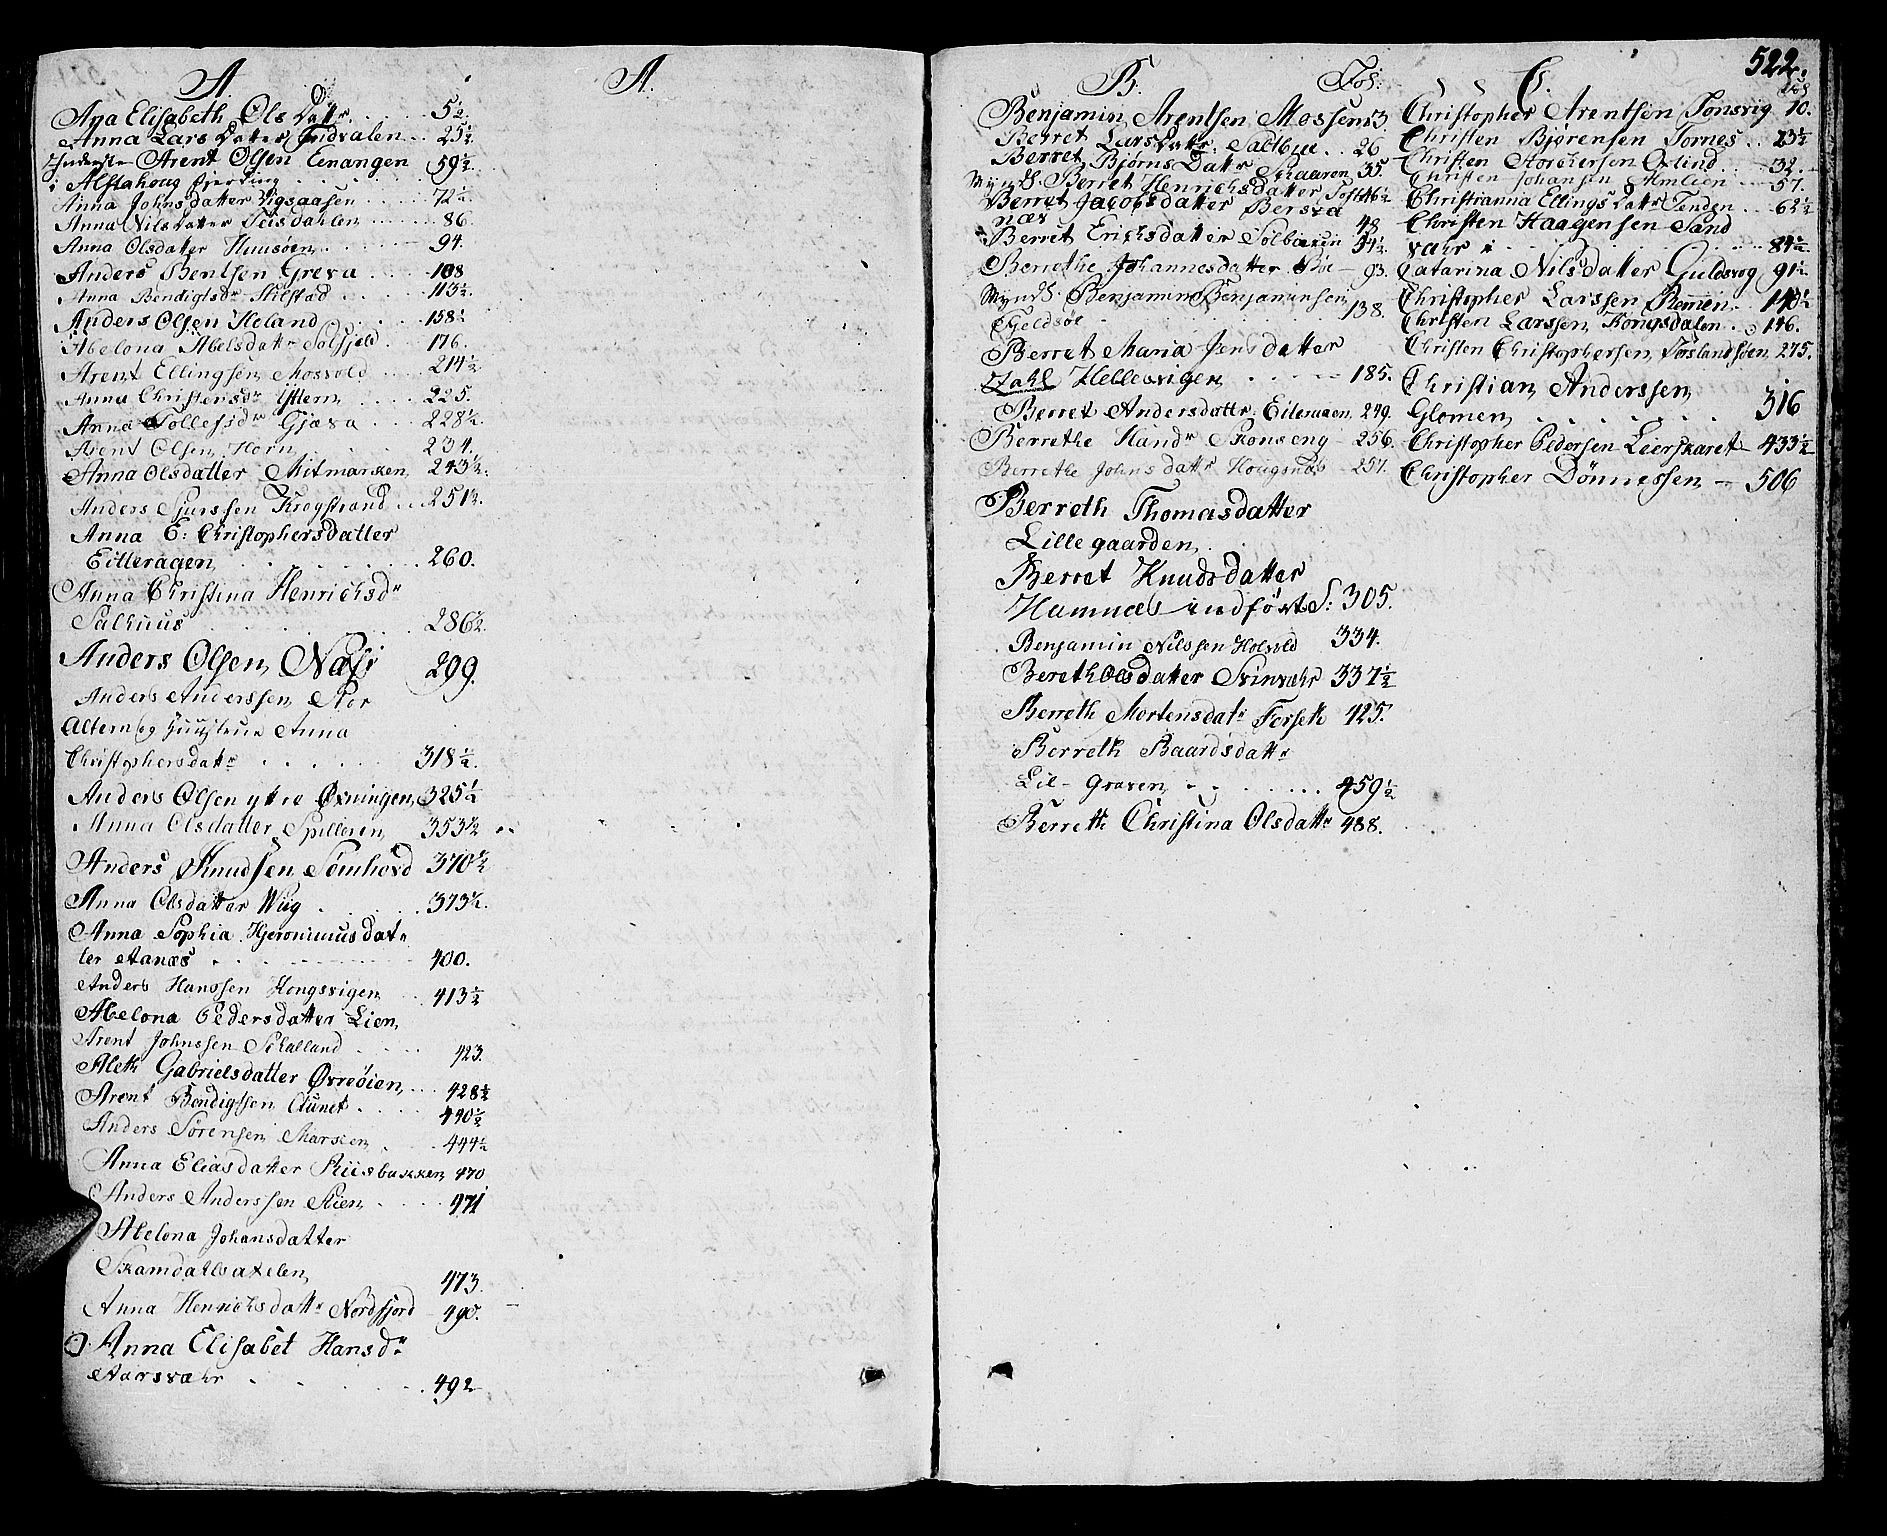 A.
Ana Elisabeth Ols Datr. 5½.
Anna Lars Datter Indvalen 25½
Inderste Arent Olsen Enangen 59½
i Alstahoug fjerding
Anna Johnsdatter Vigsaasen 72½
Anna Nilsdatter Teisdahlen 86.
Anna Olsdatter Huusöen 94.
Anders Bentsen Greva 108
Anna Bendigtsdr. Stilstad 113½.
Anders Olsen Heland 158½
Abelona Abelsdattr Solfjeld 176.
Arent Ellingsen Mosvold 214½
Anna Christensdr. Yttern 225.
Anna Tollefsdr Gjæva 228½.
Arent Olsen Horn 234.
Anna Olsdatter Mitmarken 243½.
Anders Sjurssen Krogstrand 251½.
Anna E: Christophersdatter
Eitteragen 260.
Anna Christina Henrichsdr
Salhuus 286½.
Anders Olsen Næss 299.
Anders Anderssen Stor
Altern og Hustrue Anna
Christophersdatr 318½.
Anders Olsen ytre Øxningen 325½
Anna Olsdatter Spilleren 353½
Anders Knudsen Sömhovd 370½
Anna Olsdatter Wiig 373½.
Anna Sophia Hjeronimus dat-
ter Aanæs 400.
Anders Hanssen Kongsvigen 413½
Abelona Pedersdatter Lien
Arent Johnssen Schalland 423.
Aleth Gabrielsdatter Øvreöien 428½
Arent Bendigtsen Aunet 440½
Anders Sörensen Marken 444½
Anna Eliasdatter Riisbakken 470
Anders Anderssen Stien 471
Abelona Johansdatter
Skamdahlsaxelen 473.
Anna Henrichsdattr Nordfjord 490.
Anna Elisabet Hansdr
Aarsvæhr 492
A.
B. Fol:
Benjamin Arentsen Mossen 13.
Berret Larsdattr: Saltbue 26
Berret Björns Datr Skaaren 35.
Mynd. Berret Henrichsdatter Toft 46½
Berret Jacobsdatter Bersva
næs 48
Berret Erichsdatter Solbacken 54½.
Berrethe Johannesdatter Böe 93.
Mynd. Benjamin Benjaminsen
Fjeldsöe 138.
Berret Maria Jensdatter
Zahl Hellesvigen 185.
Berret Andersdatter Eiteraaen 249.
Berrethe Hansdr Skonseng 256.
Berrethe Johnsdattr Hougsnæs 257.
Berreth Thomasdatter
Lillegaarden
Berret Knudsdatter
Hamnæs indfört S: 305.
Benjamin Nilssen Holvold 334.
Bereth Olsdatter Svinvæhr 337½
Berreth Mortensdatr Forseth 425.
Berreth Baardsdattr
Lil-Graven 459½
Berreth Christina Olsdattr 488.
522.
C. Fol
Christopher Arentsen Tonsvig 10.
Christen Bjørensen Tornes 23½
Christen Aschersen Oxlind 32.
Christen Johansen Almlien 57.
Christianna Ellings Datr Tenden 62½
Christen Haagensen Sand
vahr i 84½
Catarina Nilsdatter Guldsvog 91½
Christopher Larssen Remen 140½
Christen Larssen Kongsdalen 146.
Christen Christophersen Forslandsöen 275.
Christian Anderssen
Glomen 316
Christopher Pedersen Leerskaret 433½
Christopher Dönnessen 506